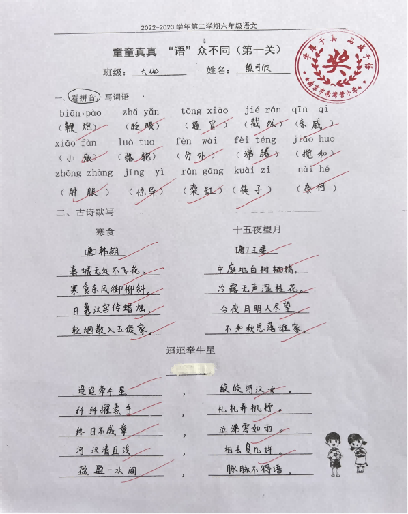 2022-2023学年第二学期六年级语文
童童真真 “语”众不同（第一关）
班级： 姓名：
一、看拼音，写词语
biān pào zhǎ yǎn tōng xiāo jié rán qīn qi
（鞭炮）（眨眼）（通宵）（截然）（亲戚）
xiǎo fàn luò tuo fèn wài fèi téng jiǎo huo
（小贩）（骆驼）（分外）（沸腾）（搅和）
zhǒng zhàng jīng yì rǎn gāng kuài zi nài hé
（肿胀）（ ）（染缸）（筷子）（奈何）
二、古诗默写
寒食 十五夜望月
唐 韩翃 唐 王建
春城无处不飞花， 中庭地白树栖鸦，
寒食东风御柳斜。 冷露无声湿桂花。
日暮汉宫传蜡烛， 今夜月明人尽望，
轻烟散入五侯家。 不知秋思落谁家。
迢迢牵牛星
迢迢牵牛星， 皎皎河汉女。
纤纤擢素手， 札札弄机杼。
终日不成章， 泣涕零如雨。
河汉清且浅， 相去复几许。
盈盈一水间， 脉脉不得语。
奖